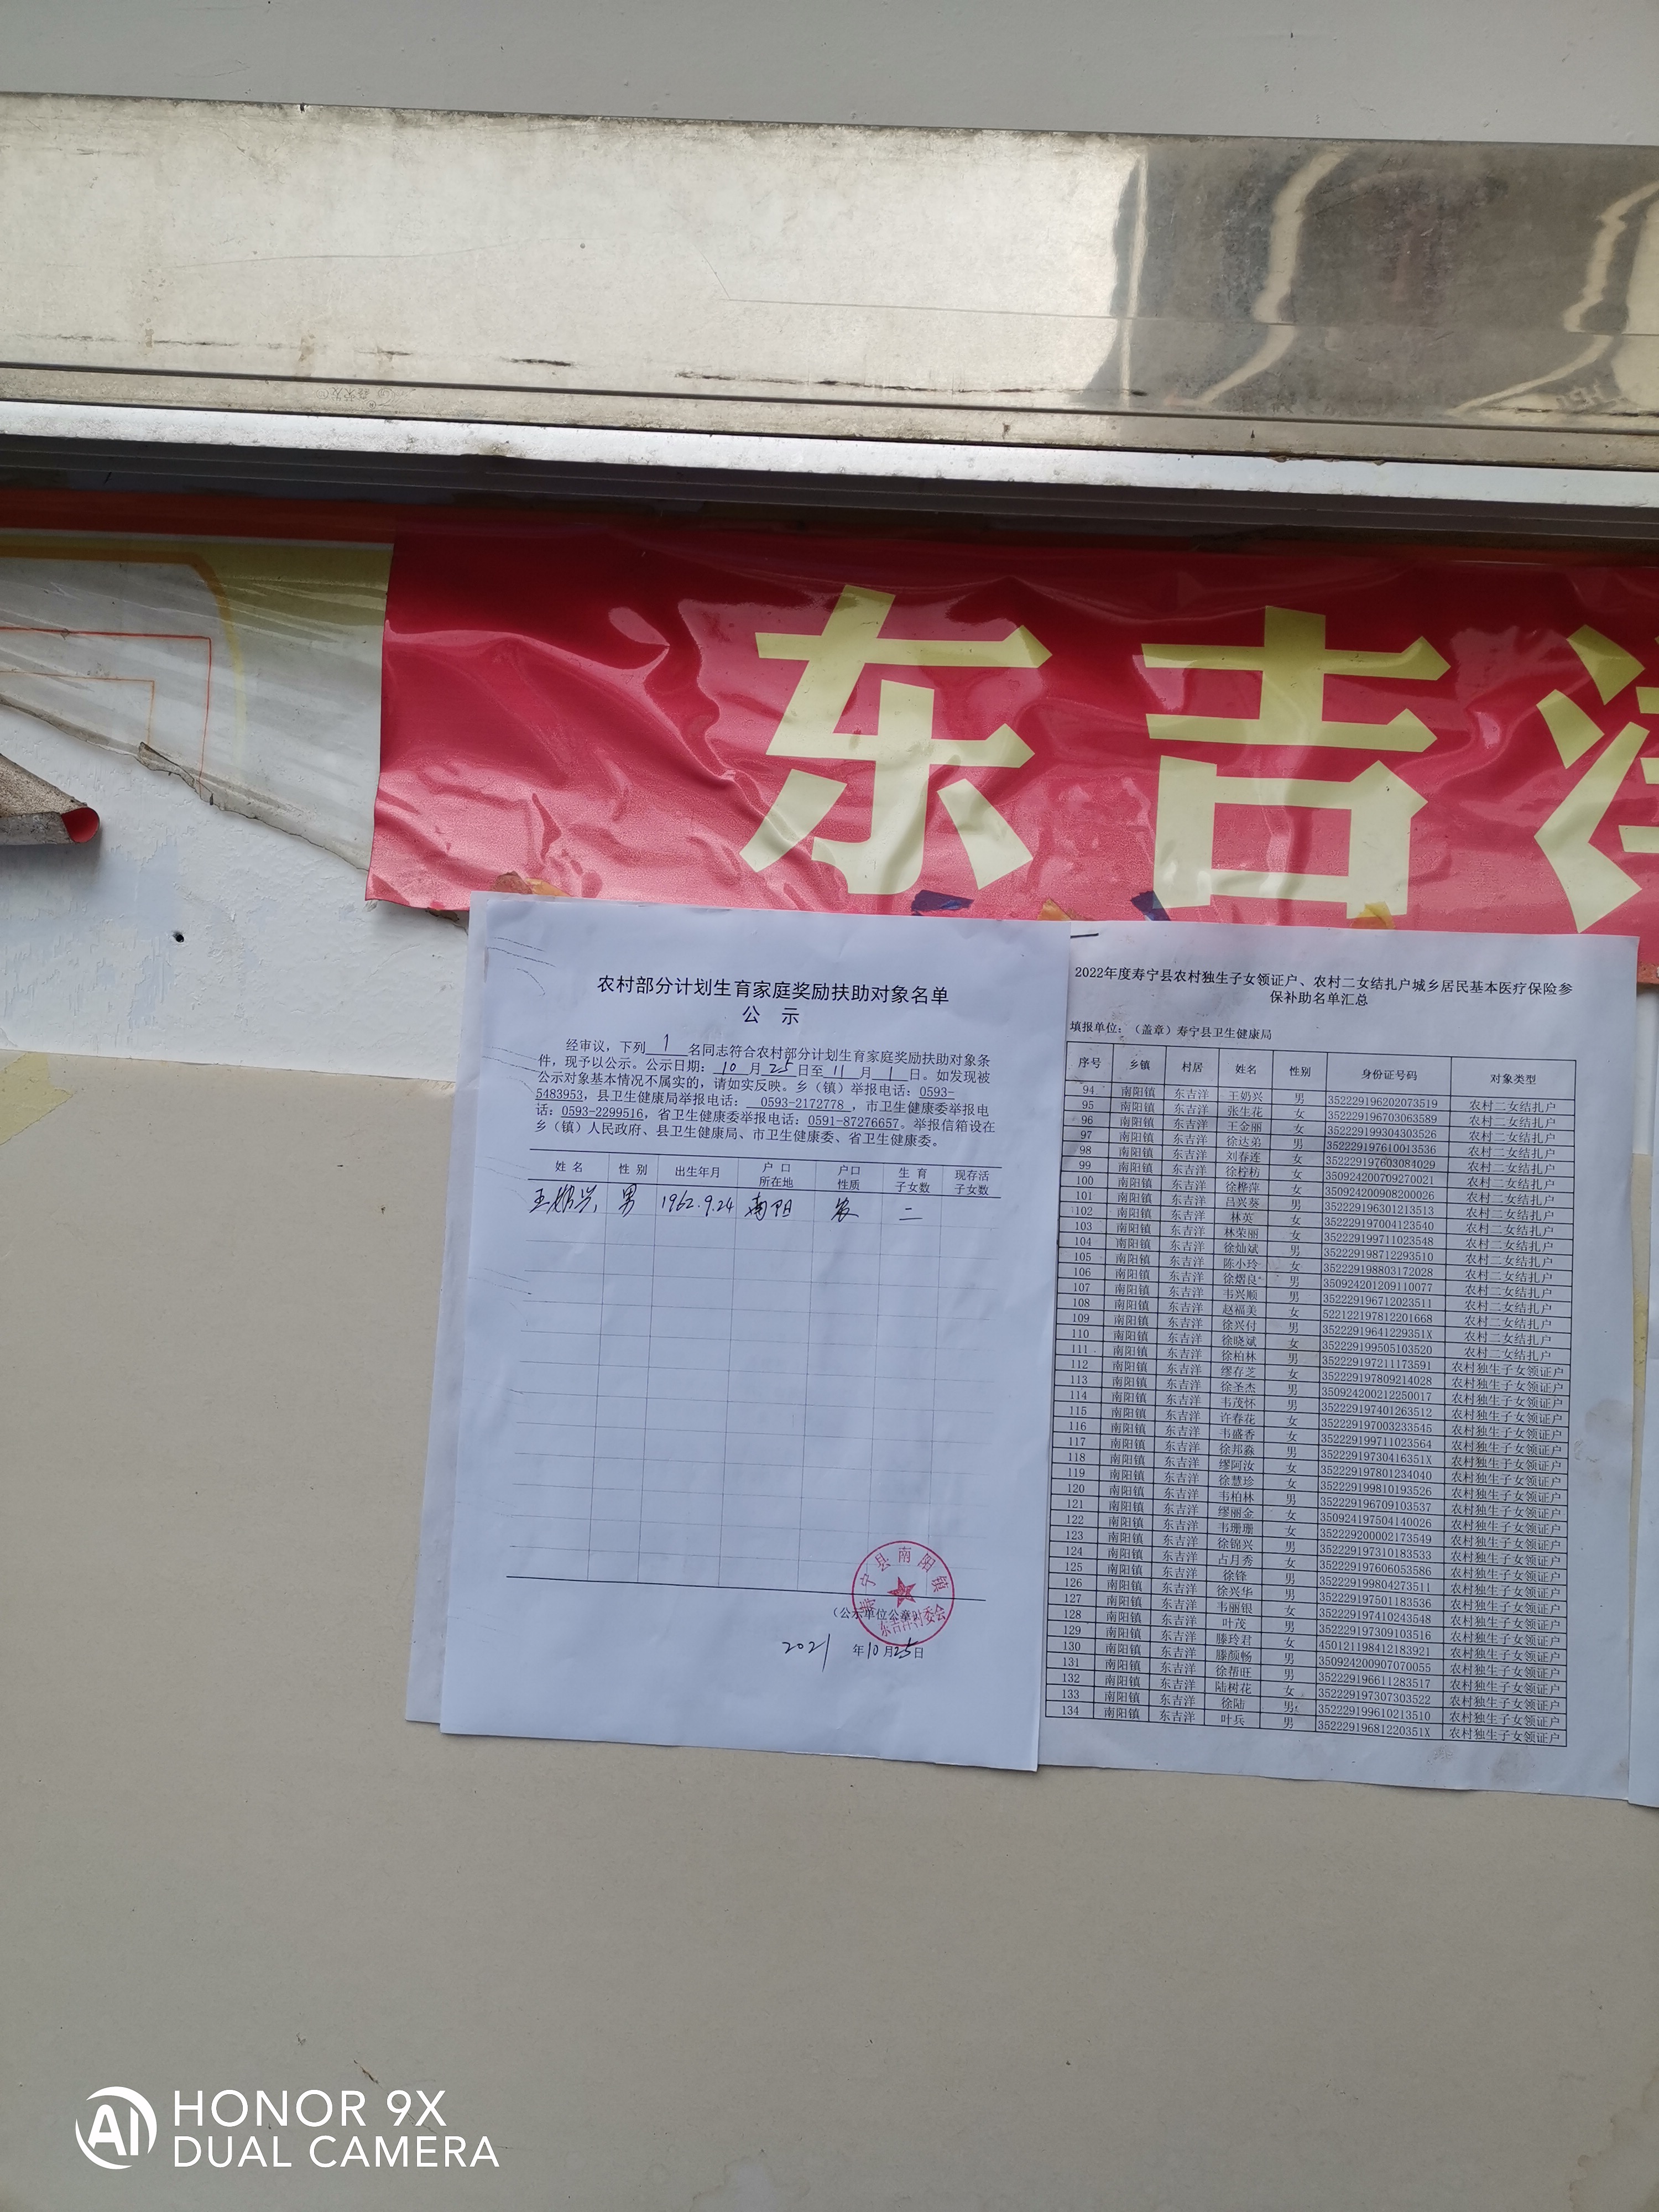 东吉洋
农村部分计划生育家庭奖励扶助对象名单
公 示
经审议，下列 1 名同志符合农村部分计划生育家庭奖励扶助对象条
件，现予以公示。公示日期：10月25日至11月1日。如发现被
公示对象基本情况不属实的，请如实反映。乡（镇）举报电话：0593-
5483953，县卫生健康局举报电话：0593-2172778，市卫生健康委举报电
话：0593-2299516，省卫生健康委举报电话：0591-87276657。举报信箱设在
乡（镇）人民政府、县卫生健康局、市卫生健康委、省卫生健康委。
姓 名 性 别 出生年月 户 口 所在地 户口 性质 生 育 子女数 现存活 子女数
王奶兴 男 1962.9.24 南阳 农 二
寿宁县南阳镇
东吉洋村委会
（公示单位公章）
2021 年10月25日
2022年度寿宁县农村独生子女领证户、农村二女结扎户城乡居民基本医疗保险参
保补助名单汇总
填报单位：（盖章）寿宁县卫生健康局
序号 乡镇 村居 姓名 性别 身份证号码 对象类型
94 南阳镇 东吉洋 王奶兴 男 352229196202073519 农村二女结扎户
95 南阳镇 东吉洋 张生花 女 352229196703063589 农村二女结扎户
96 南阳镇 东吉洋 王金丽 女 352229199304303526 农村二女结扎户
97 南阳镇 东吉洋 徐达弟 男 352229197610013536 农村二女结扎户
98 南阳镇 东吉洋 刘春连 女 352229197603084029 农村二女结扎户
99 南阳镇 东吉洋 徐柠枋 女 350924200709270021 农村二女结扎户
100 南阳镇 东吉洋 徐桦萍 女 350924200908200026 农村二女结扎户
101 南阳镇 东吉洋 吕兴葵 男 352229196301213513 农村二女结扎户
102 南阳镇 东吉洋 林英 女 352229197004123540 农村二女结扎户
103 南阳镇 东吉洋 林荣丽 女 352229199711023548 农村二女结扎户
104 南阳镇 东吉洋 徐灿斌 男 352229198712293510 农村二女结扎户
105 南阳镇 东吉洋 陈小玲 女 352229198803172028 农村二女结扎户
106 南阳镇 东吉洋 徐熠良 男 350924201209110077 农村二女结扎户
107 南阳镇 东吉洋 韦兴顺 男 352229196712023511 农村二女结扎户
108 南阳镇 东吉洋 赵福美 女 522122197812201668 农村二女结扎户
109 南阳镇 东吉洋 徐兴付 男 35222919641229351X 农村二女结扎户
110 南阳镇 东吉洋 徐晓斌 女 352229199505103520 农村二女结扎户
111 南阳镇 东吉洋 徐柏林 男 352229197211173591 农村独生子女领证户
112 南阳镇 东吉洋 缪存芝 女 352229197809214028 农村独生子女领证户
113 南阳镇 东吉洋 徐圣杰 男 350924200212250017 农村独生子女领证户
114 南阳镇 东吉洋 韦茂怀 男 352229197401263512 农村独生子女领证户
115 南阳镇 东吉洋 许春花 女 352229197003233545 农村独生子女领证户
116 南阳镇 东吉洋 韦盛香 女 352229199711023564 农村独生子女领证户
117 南阳镇 东吉洋 徐邦淼 男 35222919730416351X 农村独生子女领证户
118 南阳镇 东吉洋 缪阿汝 女 352229197801234040 农村独生子女领证户
119 南阳镇 东吉洋 徐慧珍 女 352229199810193526 农村独生子女领证户
120 南阳镇 东吉洋 韦柏林 男 352229196709103537 农村独生子女领证户
121 南阳镇 东吉洋 缪丽金 女 350924197504140026 农村独生子女领证户
122 南阳镇 东吉洋 韦珊珊 女 352229200002173549 农村独生子女领证户
123 南阳镇 东吉洋 徐锦兴 男 352229197310183533 农村独生子女领证户
124 南阳镇 东吉洋 占月秀 女 352229197606053586 农村独生子女领证户
125 南阳镇 东吉洋 徐锋 男 352229199804273511 农村独生子女领证户
126 南阳镇 东吉洋 徐兴华 男 352229197501183536 农村独生子女领证户
127 南阳镇 东吉洋 韦丽银 女 352229197410243548 农村独生子女领证户
128 南阳镇 东吉洋 叶茂 男 352229197309103516 农村独生子女领证户
129 南阳镇 东吉洋 滕玲君 女 450121198412183921 农村独生子女领证户
130 南阳镇 东吉洋 滕颜畅 男 350924200907070055 农村独生子女领证户
131 南阳镇 东吉洋 徐帮旺 男 352229196611283517 农村独生子女领证户
132 南阳镇 东吉洋 陆树花 女 352229197307303522 农村独生子女领证户
133 南阳镇 东吉洋 徐陆 男 352229199610213510 农村独生子女领证户
134 南阳镇 东吉洋 叶兵 男 35222919681220351X 农村独生子女领证户
AI HONOR 9X
DUAL CAMERA